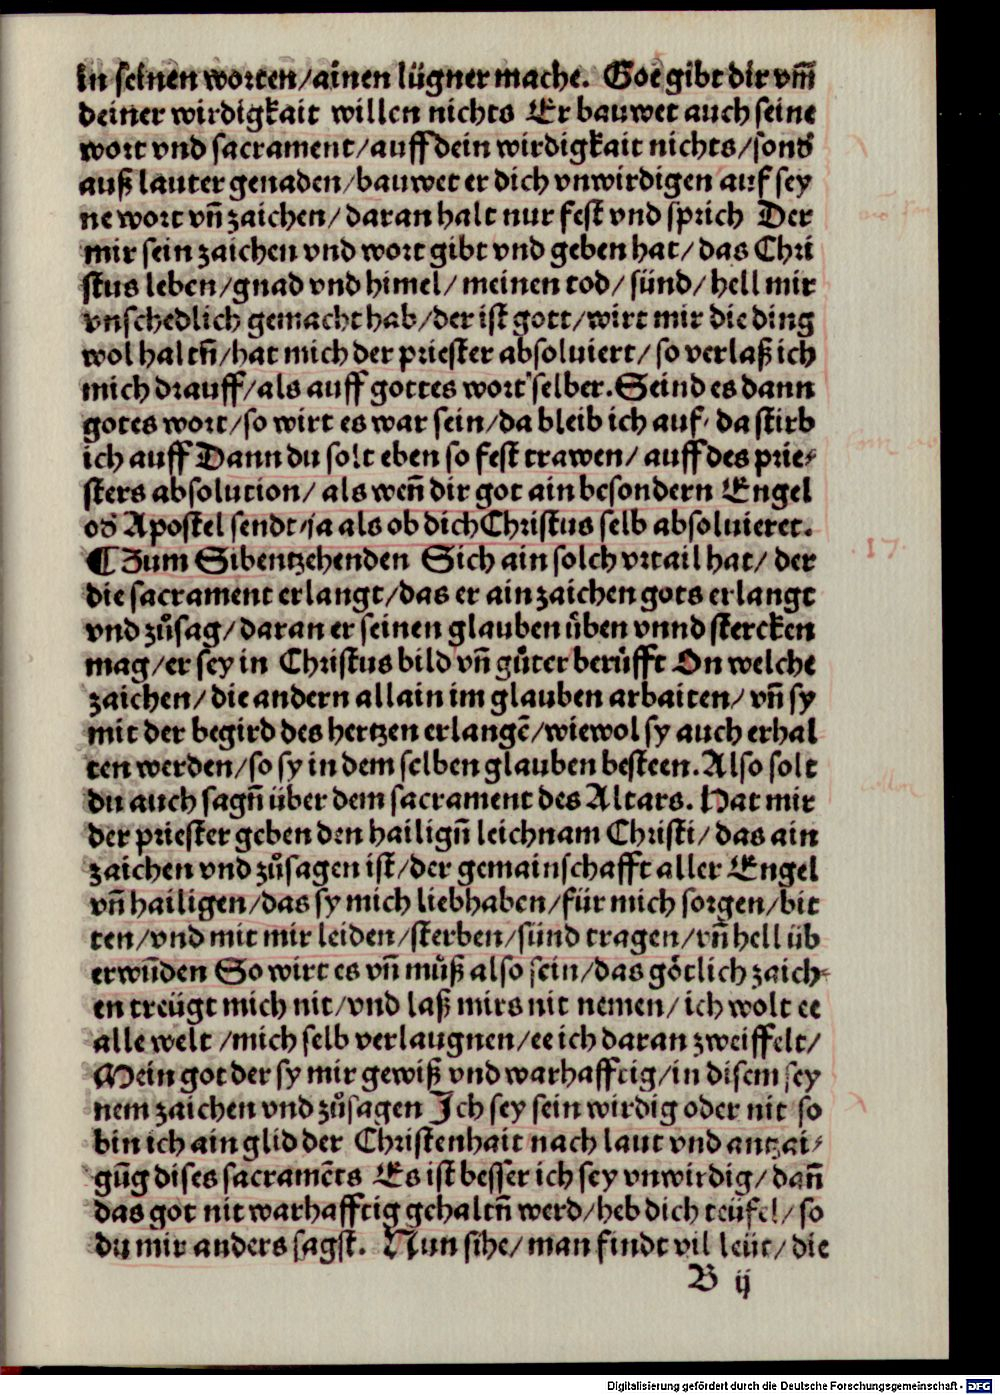 in seinen worten/ainen lügner mache. Got gibt dir vm̄
deiner wirdigkait willen nichts Er bauwet auch seine
wort vnd sacrament/auff dein wirdigkait nichts/sond̄
auß lauter genaden/bauwet er dich vnwirdigen auf sey
ne wort vn̄ zaichen/daran halt nur fest vnd sprich Der
mir sein zaichen vnd wort gibt vnd geben hat/das Chri
stus leben/gnad vnd himel/meinen tod/sünd/hell mir
vnschedlich gemacht hab/der ist gott/wirt mir die ding
wol haltn̄/hat mich der priester absoluiert/so verlaß ich
mich drauff/als auff gottes wort selber. Seind es dann
gotes wort/so wirt es war sein/da bleib ich auf/da stirb
ich auff Dann du solt eben so fest trawen/auff des prie⸗
sters absolution/als wen̄ dir got ain besondern Engel
od̄ Apostel sendt/ja als ob dich Christus selb absoluieret.
¶ Zum Sibentzehenden Sich ain solch vrtail hat/der
die sacrament erlangt/das er ain zaichen gots erlangt
vnd zůsag/daran er seinen glauben üben vnnd stercken
mag/er sey in Christus bild vn̄ gůter berüfft On welche
zaichen/die andern allain im glauben arbaiten/vn̄ sy
mit der begird des hertzen erlangē/wiewol sy auch erhal
ten werden/so sy in dem selben glauben besteen. Also solt
du auch sagn̄ über dem sacrament des Altars. Hat mir
der priester geben den hailign̄ leichnam Christi/das ain
zaichen vnd zůsagen ist/der gemainschafft aller Engel
vn̄ hailigen/das sy mich liebhaben/für mich sorgen/bit
ten/vnd mit mir leiden/sterben/sünd tragen/vn̄ hell üb
erwun̄den So wirt es vn̄ můß also sein/das götlich zaich⸗
en treügt mich nit/vnd laß mirs nit nemen/ich wolt ee
alle welt/mich selb verlaugnen/ee ich daran zweiffelt/
Mein got der sy mir gewiß vnd warhafftig/in disem sey
nem zaichen vnd zůsagen Ich sey sein wirdig oder nit so
bin ich ain glid der Christenhait nach laut vnd antzai⸗
gūg dises sacramēts Es ist besser ich sey vnwirdig/dan̄
das got nit warhafftig gehaltn̄ werd/heb dich teüfel/so
du mir anders sagst. Nun sihe/man findt vil leüt/die
B ij
17.
Digitalisierung gefördert durch die Deutsche Forschungsgemeinschaft - DFG